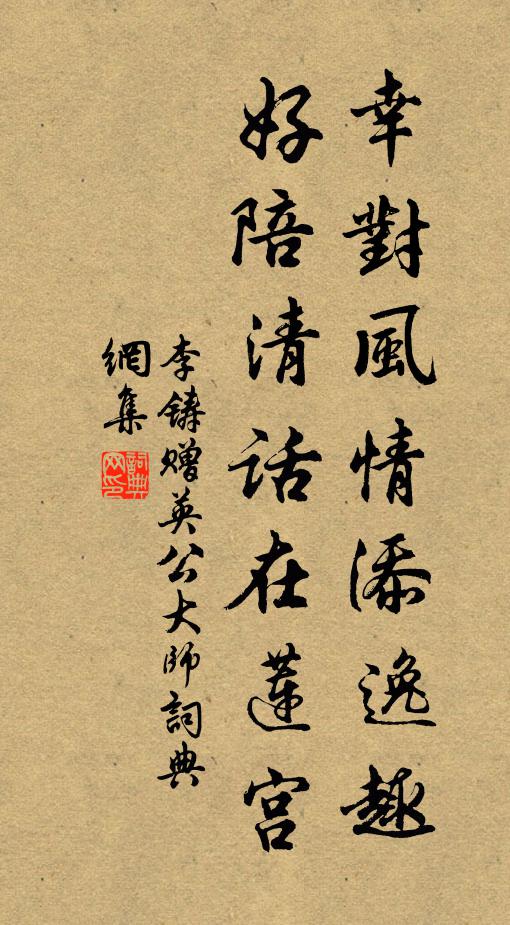 幸對風情添逸趣
好陪清話在蓮宮
李鑄贈英公大師詞典
網集
詞典网印